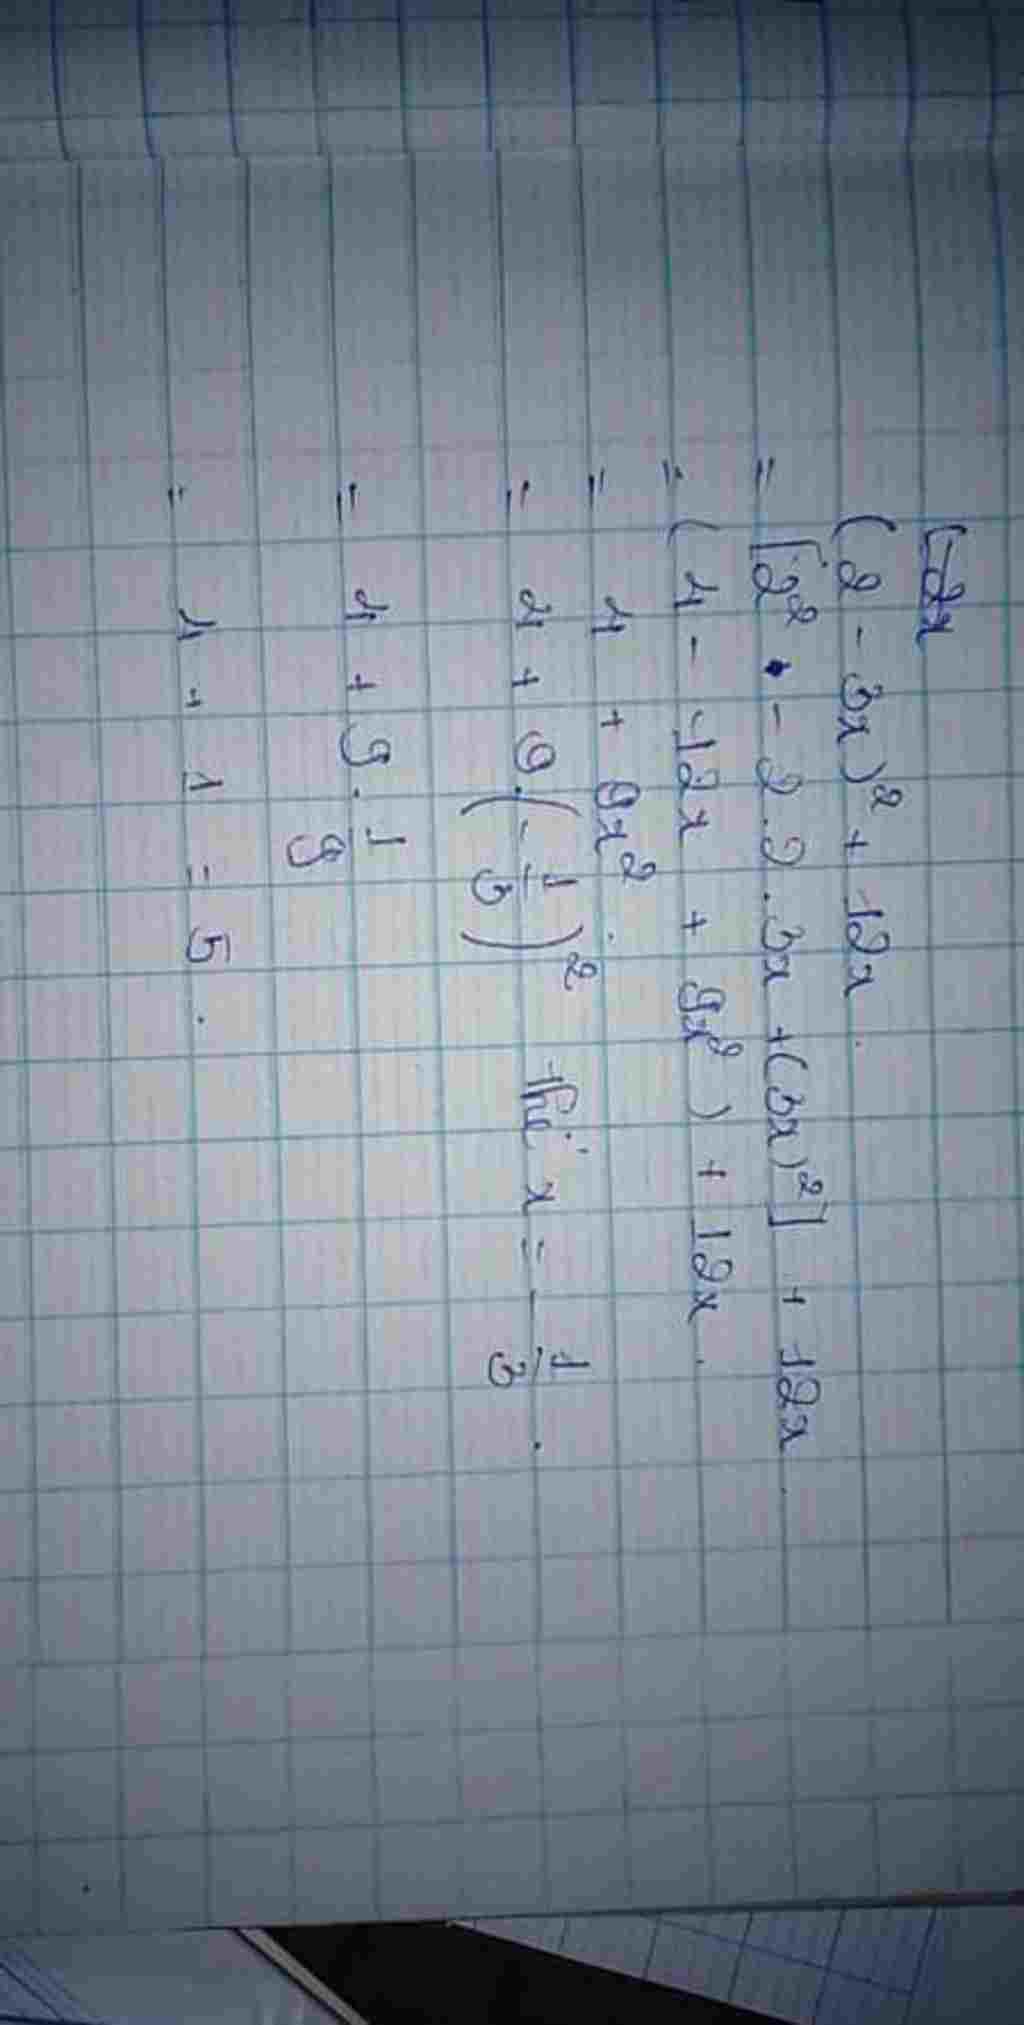 (2 - 3x)² + 12x.
= [2² - 2.2.3x + (3x)²] + 12x.
= (4 - 12x + 9x²) + 12x.
= 4 + 9x².
= 4 + 9.(-1/3)² thế x = -1/3.
= 4 + 9.1/9
= 4 + 1 = 5.